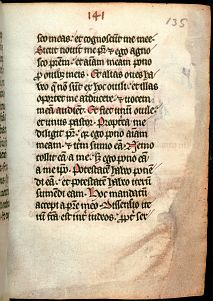 141
135
sco meas. et cognoscūt me mee
Sicut novit me pr̄. et ego agnos
co prēm. et aīam meam pono
p ovibȝ meis. Et alias oves ha
beo q̄ nō sūt ex hoc ovili. et illas
oportet me adducere. et vocem
meā audiēt. Et fiet unū ovile.
et unus pastor. Propterea me
diligit pr̄. qr ego pono aīam
meam. et itm sumo eā. Nemo
tollit eā a me. sȝ ego pono eā
a me ipō. Potestatē habeo ponē
di eā. et potestatē habeo iterū
sumēdi eam. Hoc mandatū
accepi a pr̄e meo. Dissensio ite
rū fc̄a est int iudeos. ppt ser